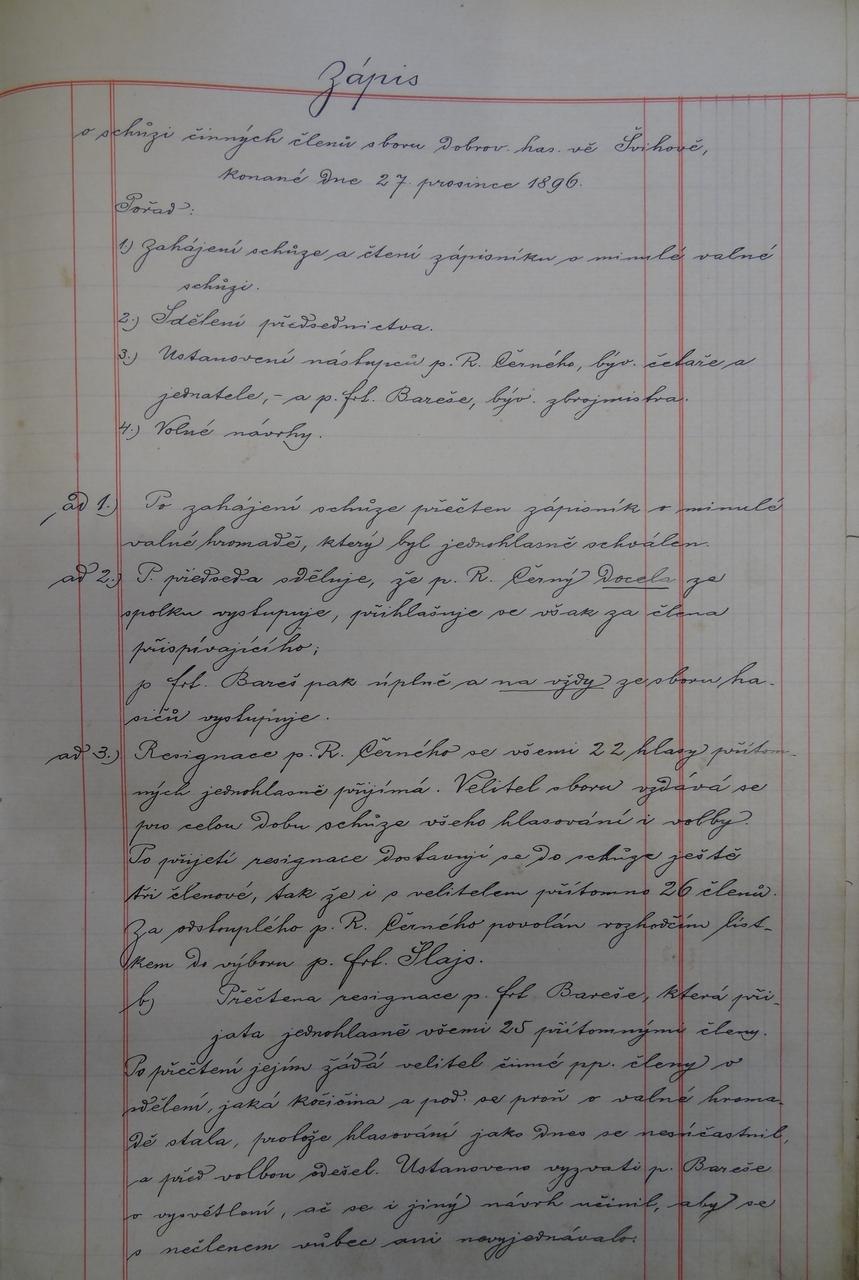 Zápis
o schůzi činných členů sboru dobrov. has. vě Švihově,
konané dne 27. prosince 1896.
Pořad:
1.) Zahájení schůze a čtení zápisníku o minulé valné
schůzi.
2.) Sdělení předsednictva.
3.) Ustanovení nástupců p. R. Černého, býv. četaře a
jednatele, – a p. frt. Bareše, býv. zbrojmistra.
4.) Volné návrhy.
ad 1.) Po zahájení schůze přečten zápisník o minulé
valné hromadě, který byl jednohlasně schválen.
ad 2.) P. předseda sděluje, že p. R. Černý docela ze
spolku vystupuje, přihlašuje se však za člena
přispívajícího;
p frt. Bareš pak úplně a na vždy ze sboru ha-
sičů vystupuje.
ad 3.) Resignace p. R. Černého se všemi 22 hlasy přítom-
ných jednohlasně přijímá. Velitel sboru vzdává se
pro celou dobu schůze všeho hlasování i volby.
Po přijetí resignace dostavují se do schůze ještě
tři členové, tak že i s velitelem přítomno 26 členů.
Za odstouplého p. R. Černého povolán rozhodčím líst-
kem do výboru p. frt. Šlajs.
b) Přečtena resignace p. frt Bareše, která při-
jata jednohlasně všemi 25 přítomnými členy.
Po přečtení jejím žádá velitel činné pp. členy o
sdělení, jaká kočičina a pod. se proň o valné hroma-
dě stala, protože hlasování jako dnes se nesúčastnil,
a před volbou odešel. Ustanoveno vyzvati p. Bareše
o vysvětlení, ač se i jiný návrh učinil, aby se
s nečlenem vůbec ani nevyjednávalo.